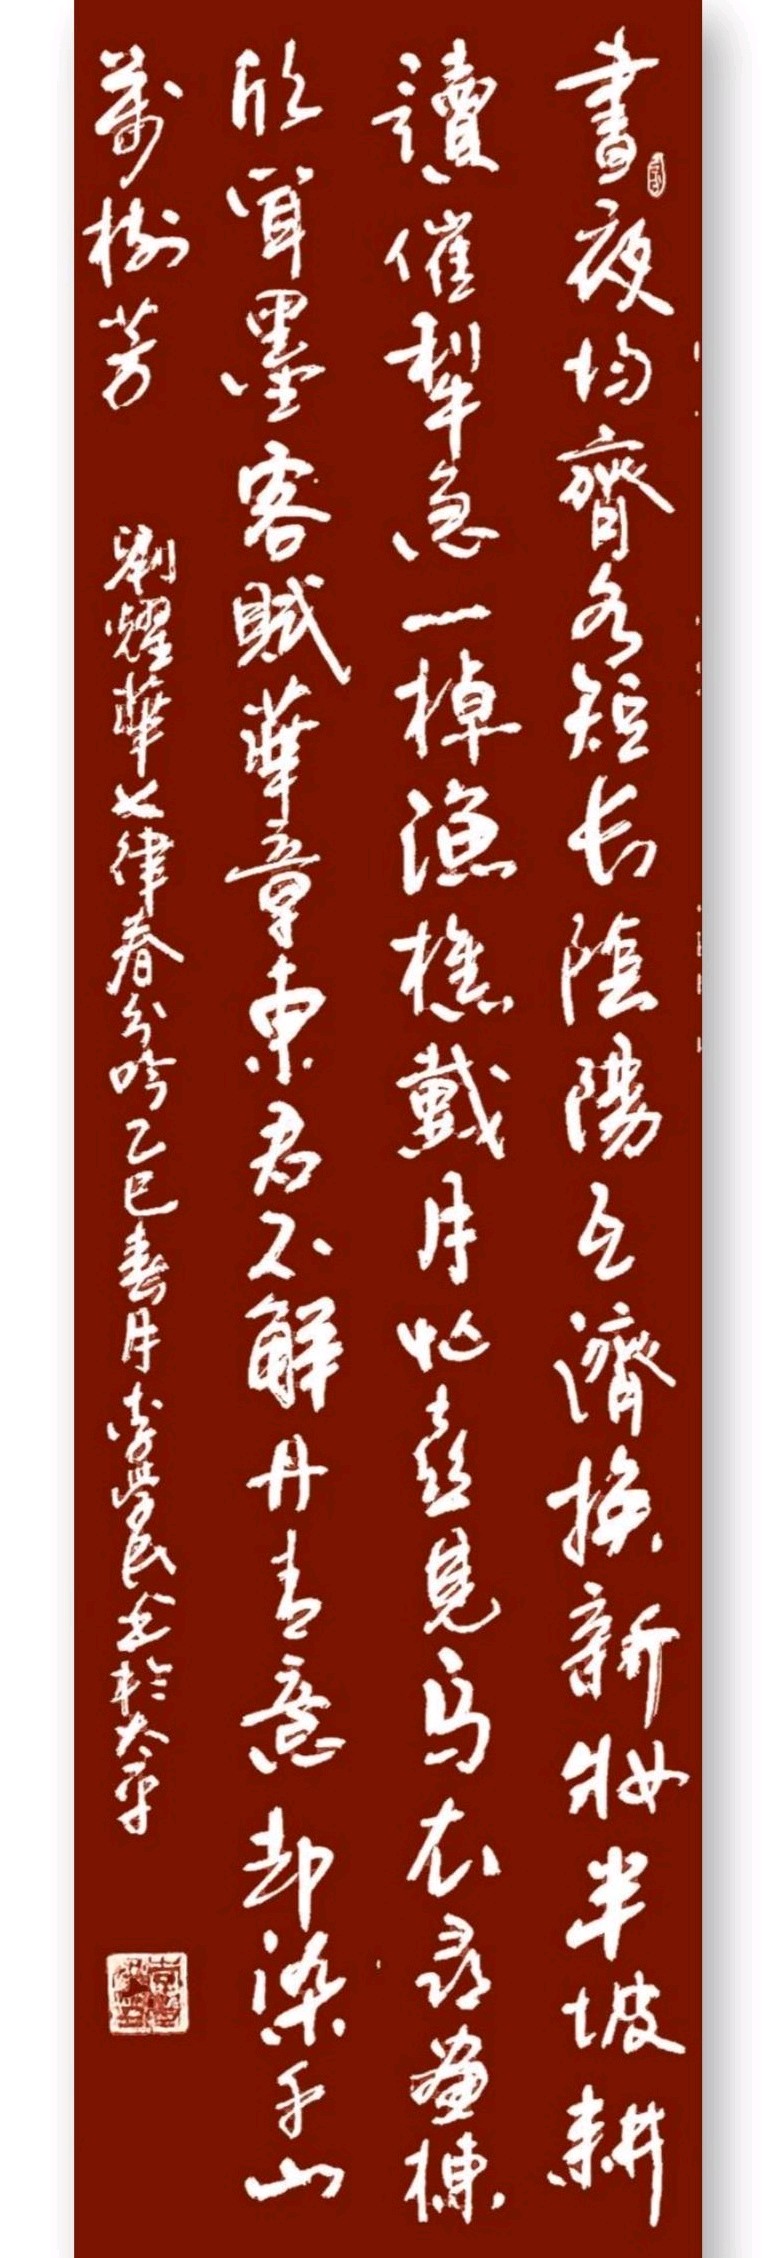 晝夜均齊各短长陰陽互濟換新妝半坡耕
讀催犁急一棹漁樵戴月忙喜見烏衣尋畫棟
欣聞墨客賦華章東君不解丹青意却染千山
萬樹芳 劉耀華七律春分吟乙巳春月李學民書於太平